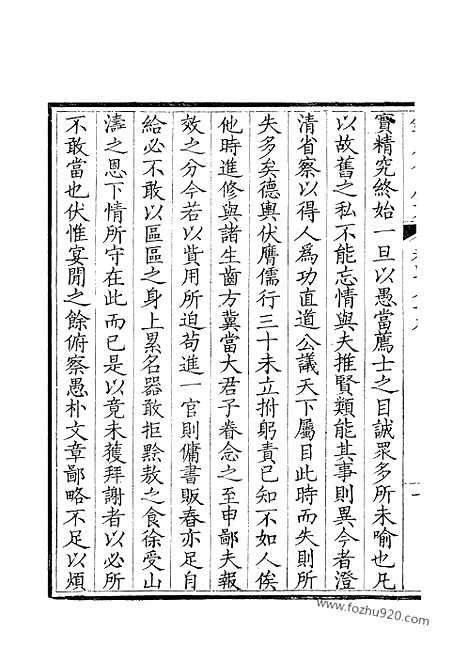 實精究終始一旦以愚當薦士之目誠眾多所未喻也凡
以故舊之私不能忘情與夫推賢類能其事則異今者澄
清省察以得人為功直道公議天下屬目此時而失則所
失多矣德輿伏膺儒行三十未立拊躬責已知不如人俟
他時進修與諸生齒方冀當大君子眷念之至申鄙夫報
效之分今若以貲用所迫苟進一官則傭書販舂亦足自
給必不敢以區區之身上累名器敢拒黔敖之食徐受山
濤之恩下情所守在此而已是以竟未獲拜謝者以必所
不敢當也伏惟宴閒之餘俯察愚朴文章鄙略不足以煩
www.fozhu920.com